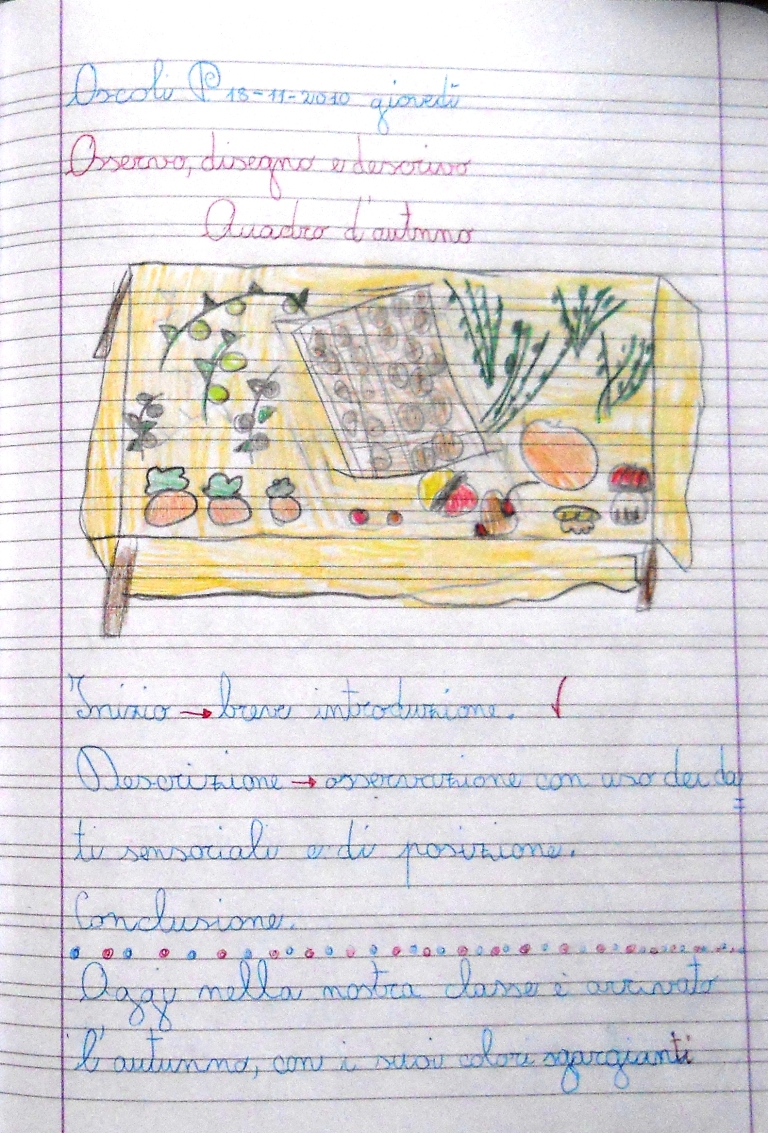 Ascoli P 18-11-2010 giovedì
Osservo, disegno e descrivo
Quadro d'autunno
Inizio → breve introduzione.
Descrizione → osservazione con uso dei da
ti sensoriali e di posizione.
Conclusione.
Oggi nella nostra classe è arrivato
l'autunno, con i suoi colori sgargianti